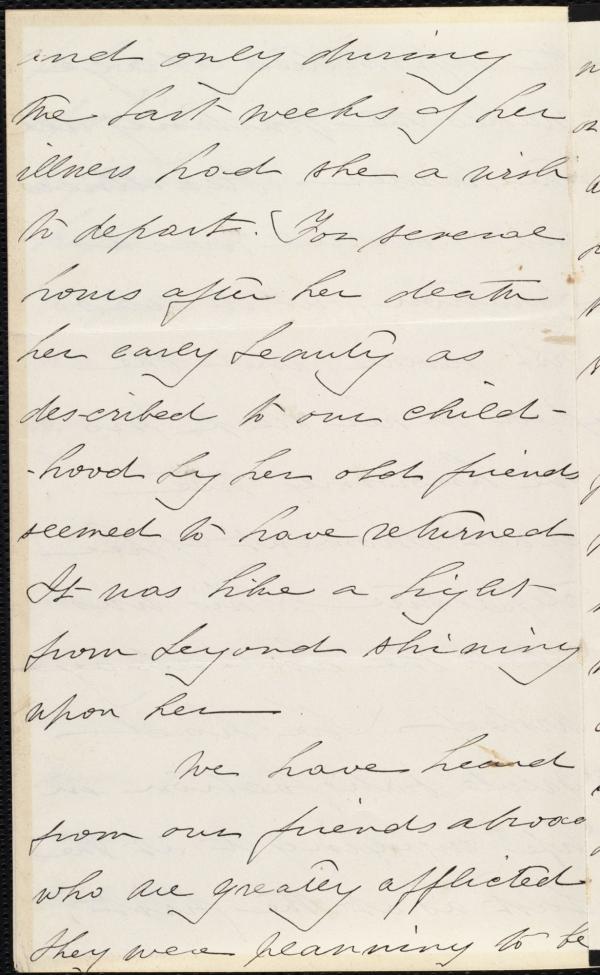 and only during
the last weeks of her
illness had she a wish
to depart. For several
hours after her death
her early beauty as
described to our child-
-hood by her old friends
seemed to have returned
It was like a light
from beyond shining
upon her—
We have heard
from our friends abroad
who are greatly afflicted
they were planning to be